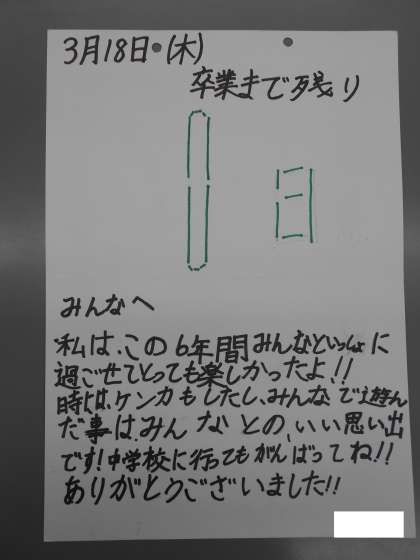 3月18日(木)
卒業まで残り
1日
みんなへ
私は、この6年間みんなといっしょに
過ごせてとっても楽しかったよ!!
時には、ケンカもしたし、みんなで遊ん
だ事は、みんなとの、いい思い出
です!中学校に行ってもがんばってね!!
ありがとうございました!!